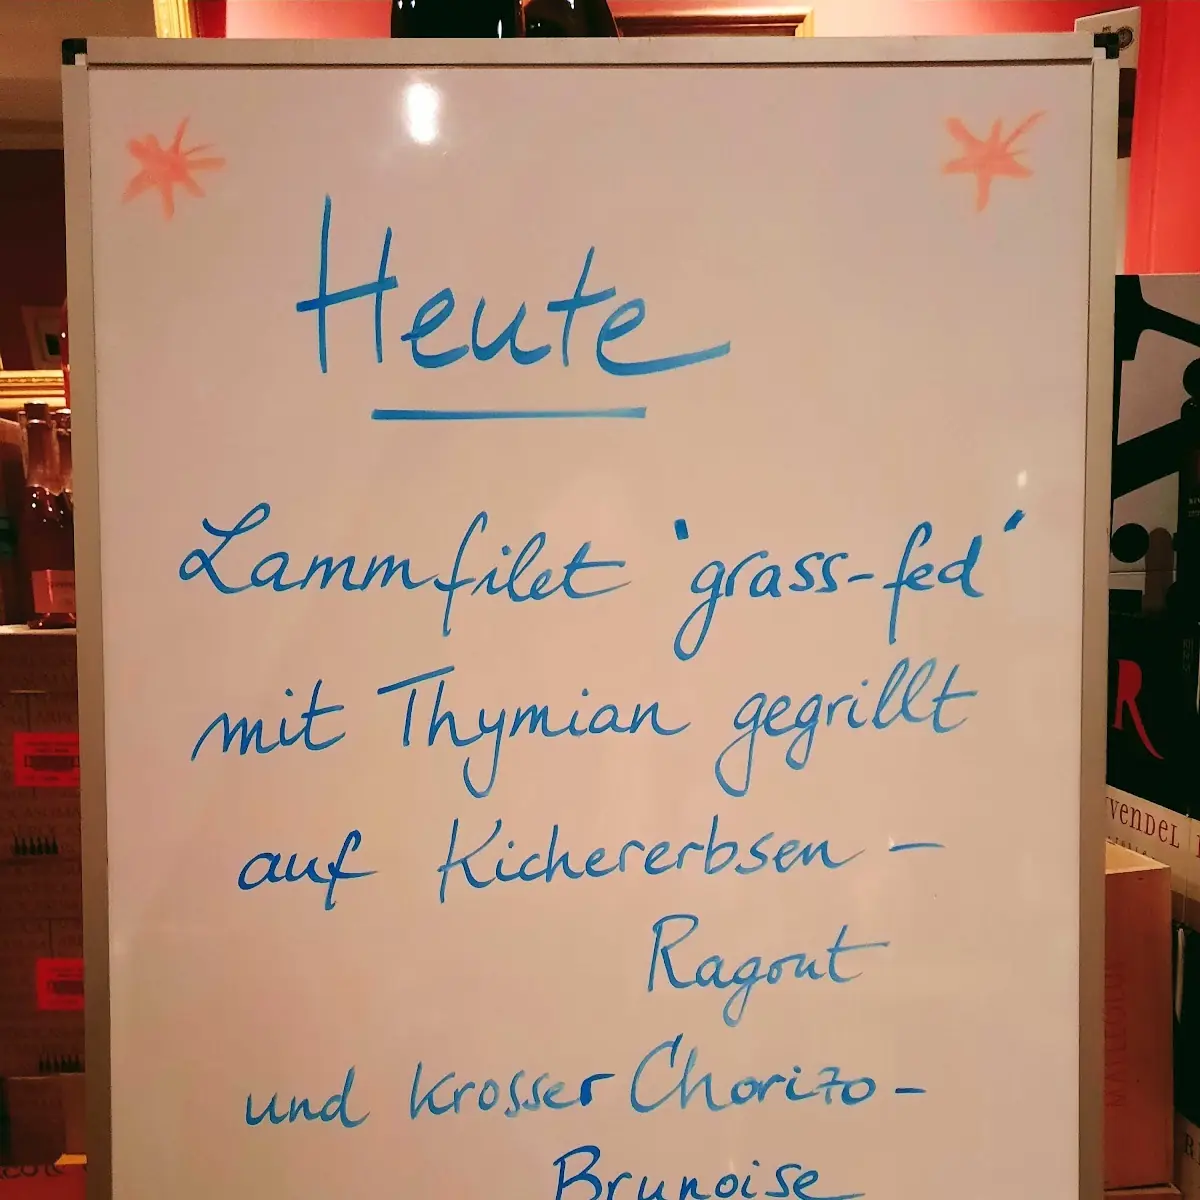 Heute
Lammfilet "grass-fed"
mit Thymian gegrillt
auf Kichererbsen -
Ragout
und krosser Chorizo -
Brunoise
R
VENDEL